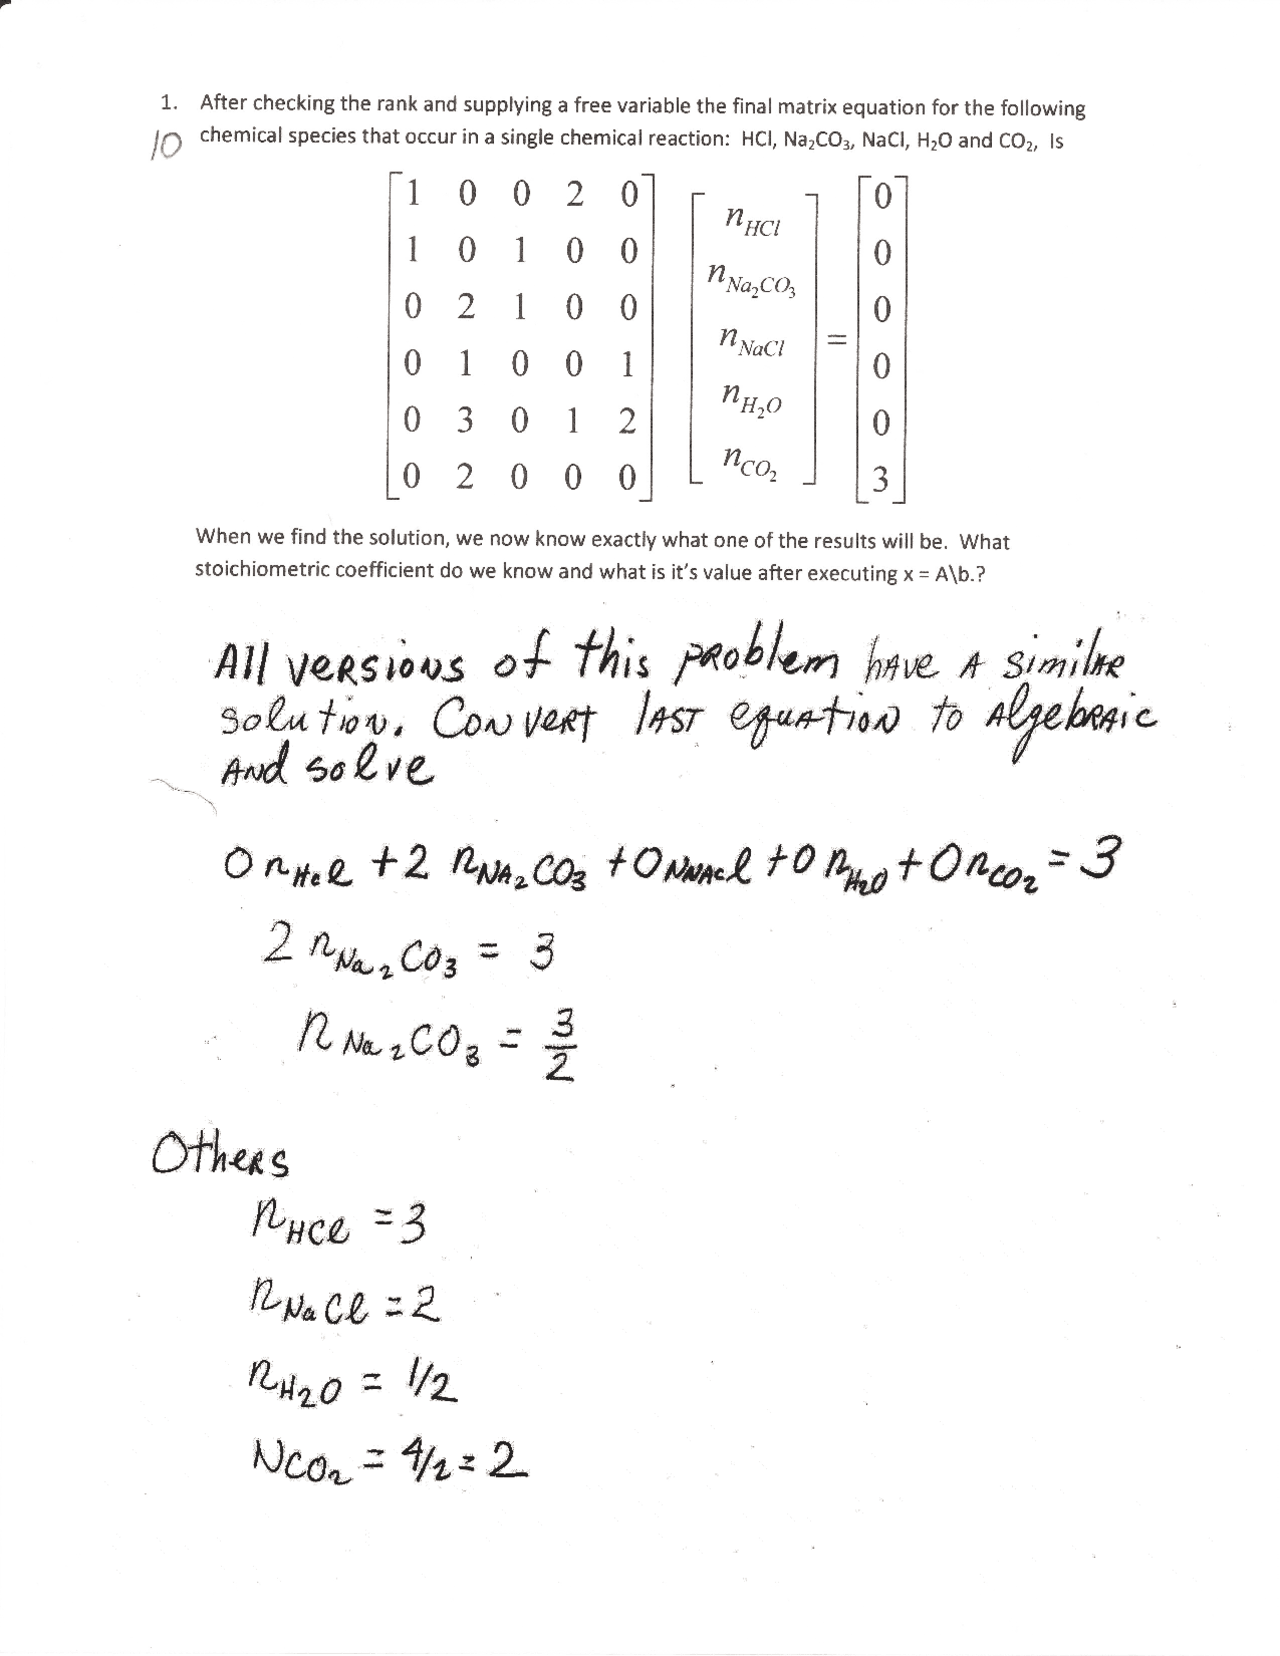 1. After checking the rank and supplying a free variable the final matrix equation for the following
10 chemical species that occur in a single chemical reaction: HCl, Na₂CO₃, NaCl, H₂O and CO₂, Is
1 0 0 2 0
1 0 1 0 0
0 2 1 0 0
0 1 0 0 1
0 3 0 1 2
0 2 0 0 0
n_HCl
n_Na₂CO₃
n_NaCl
n_H₂O
n_CO₂
=
0
0
0
0
0
3
When we find the solution, we now know exactly what one of the results will be. What
stoichiometric coefficient do we know and what is it's value after executing x = A\b.?
All versions of this problem have a similar
solution. Convert last equation to Algebraic
And solve
0 n_HCl + 2 n_NA₂CO₃ + 0 n_NACl + 0 n_H₂O + 0 n_CO₂ = 3
2 n_Na₂CO₃ = 3
n_Na₂CO₃ = 3/2
Others
n_HCl = 3
n_NaCl = 2
n_H₂O = 1/2
N_CO₂ = 4/2 = 2